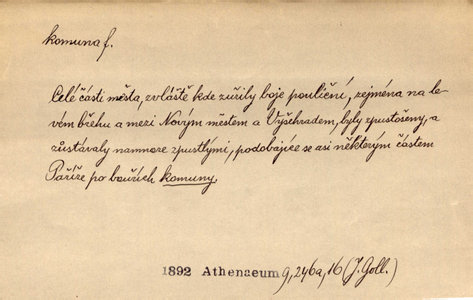 komuna f.
Celé části města, zvláště kde zuřily boje pouliční, zejména na le-
vém břehu a mezi Novým městem a Vyšehradem, byly zpustošeny, a
zůstávaly namnoze zpustlými, podobajíce se asi některým částem
Paříže po bouřích komuny.
1892 Athenaeum 9, 246a, 16 (J. Goll.)